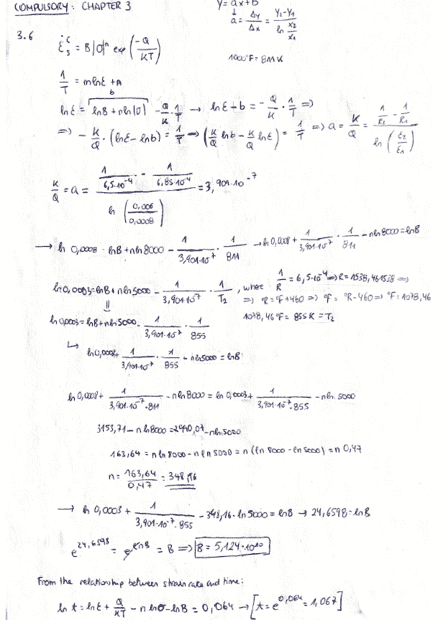 COMPULSORY: CHAPTER 3
y = ax+b
a = Δy/Δx = (y₂-y₁)/(ln x₂/x₁)
3.6
ε̇ₛ = B|σ|ⁿ exp(-Q/KT)
1000°F = 811K
1/T = mlnε+A
b
lnε = lnB+nln|σ| - Q/K · 1/T → lnε+b = -Q/K · 1/T ⇒
⇒ -K/Q · (lnε-lnb) = 1/T ⇒ (K/Q lnb - K/Q lnε) = 1/T ⇒ a = K/Q = (1/R₂ - 1/R₁)/(ln(ε₂/ε₁))
K/Q = a = (1/6,5·10⁻⁴ - 1/6,85·10⁻⁴)/(ln(0,006/0,0008)) = 3,901·10⁻⁷
→ ln 0,0008 = lnB + nln8000 - 1/3,901·10⁻⁷ · 1/811 → ln0,008 + 1/3,901·10⁻⁷ · 1/811 - nln8000 = lnB
ln0,0003 = lnB + nln5000 - 1/3,901·10⁻⁷ · 1/T₂ , where 1/R = 6,5·10⁻⁴ ⇒ R = 1538,461538 ⇒
⇒ °R = °F+460 ⇒ °F = °R-460 ⇒ °F = 1078,46
ln0,0003 = lnB + nln5000 - 1/3,901·10⁻⁷ · 1/855
1078,46°F = 855K = T₂
↳ ln0,0003 + 1/3,901·10⁻⁷ · 1/855 - nln5000 = lnB
ln0,0008 + 1/3,901·10⁻⁷·811 - nln8000 = ln0,0003 + 1/3,901·10⁻⁷·855 - nln5000
3153,71 - nln8000 = 2990,07 - nln5000
163,64 = nln8000 - nln5000 = n(ln8000 - ln5000) = n0,47
n = 163,64/0,47 = 348,16
→ ln0,0003 + 1/3,901·10⁻⁷·855 - 348,16·ln5000 = lnB → 24,6598 = lnB
e^24,6598 = e^lnB = B ⇒ B = 5,124·10¹⁰
From the relationship between strain rate and time:
ln t = lnε + Q/KT - nlnσ - lnB = 0,064 → [t = e^0,064 = 1,067]